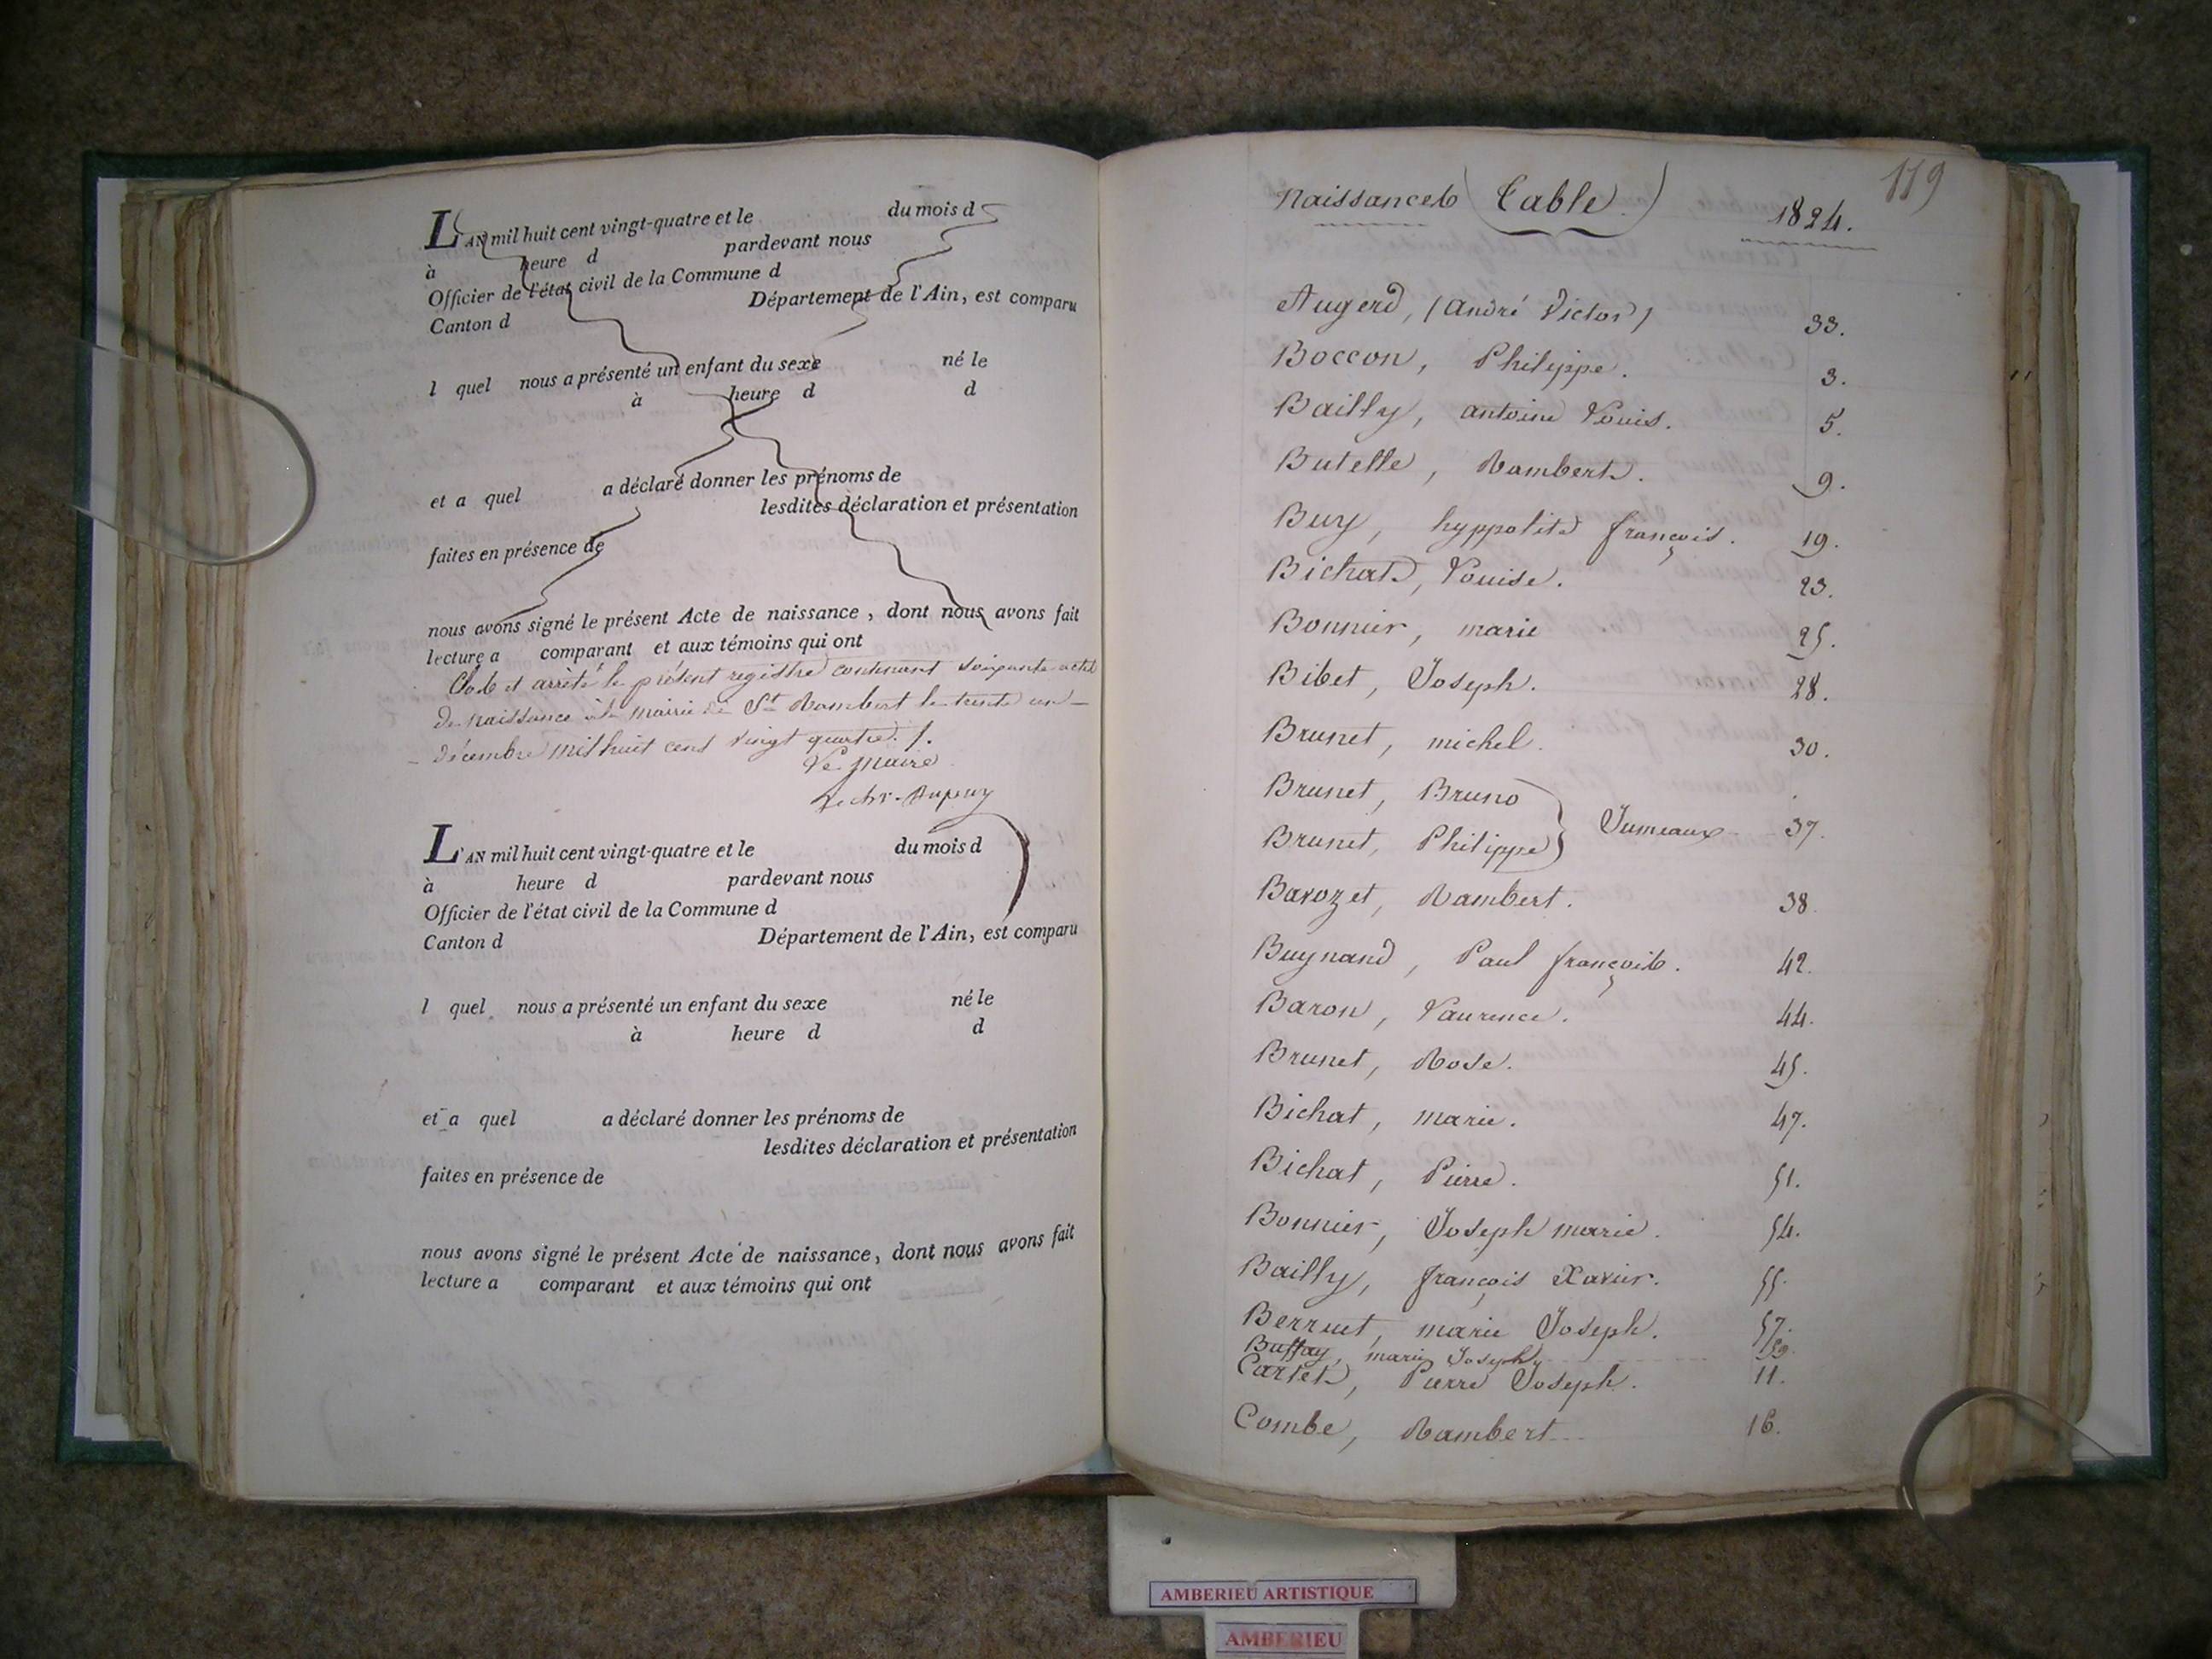 L'AN mil huit cent vingt-quatre et le du mois d
à heure d pardevant nous
Officier de l'état civil de la Commune d
Canton d Département de l'Ain, est comparu
l quel nous a présenté un enfant du sexe né le
à heure d d
et a quel a déclaré donner les prénoms de
lesdites déclaration et présentation
faites en présence de
nous avons signé le présent Acte de naissance, dont nous avons fait
lecture a comparant et aux témoins qui ont
Clos et arrêté le présent registre contenant soixante actes
de naissance à la mairie de St Rambert le trente un
décembre mil huit cent vingt quatre ./.
Le Maire
L'AN mil huit cent vingt-quatre et le du mois d
à heure d pardevant nous
Officier de l'état civil de la Commune d
Canton d Département de l'Ain, est comparu
l quel nous a présenté un enfant du sexe né le
à heure d d
et a quel a déclaré donner les prénoms de
lesdites déclaration et présentation
faites en présence de
nous avons signé le présent Acte de naissance, dont nous avons fait
lecture a comparant et aux témoins qui ont
119
Naissances (Table.) 1824.
Augerd, (André Victor) 33.
Boccon, Philippe. 3.
Bailly, antoine Louis. 5.
Butelle, Rambert. 9.
Buy, hyppolite françois. 19.
Bichat, Louise. 23.
Bonnier, marie 25.
Bibet, Joseph. 28.
Brunet, michel. 30.
Brunet, Bruno
Brunet, Philippe } Jumeaux 37.
Barozet, Rambert. 38.
Buynand, Paul françois. 42.
Baron, Laurence. 44.
Brunet, Rose. 45.
Bichat, marie. 47.
Bichat, Pierre. 51.
Bonnier, Joseph marie. 54.
Bailly, françois Xavier. 55.
Berruet, marie Joseph. 57.
Buffay, marie Joseph 59.
Cartet, Pierre Joseph. 11.
Combe, Rambert 16.
AMBERIEU ARTISTIQUE
AMBERIEU